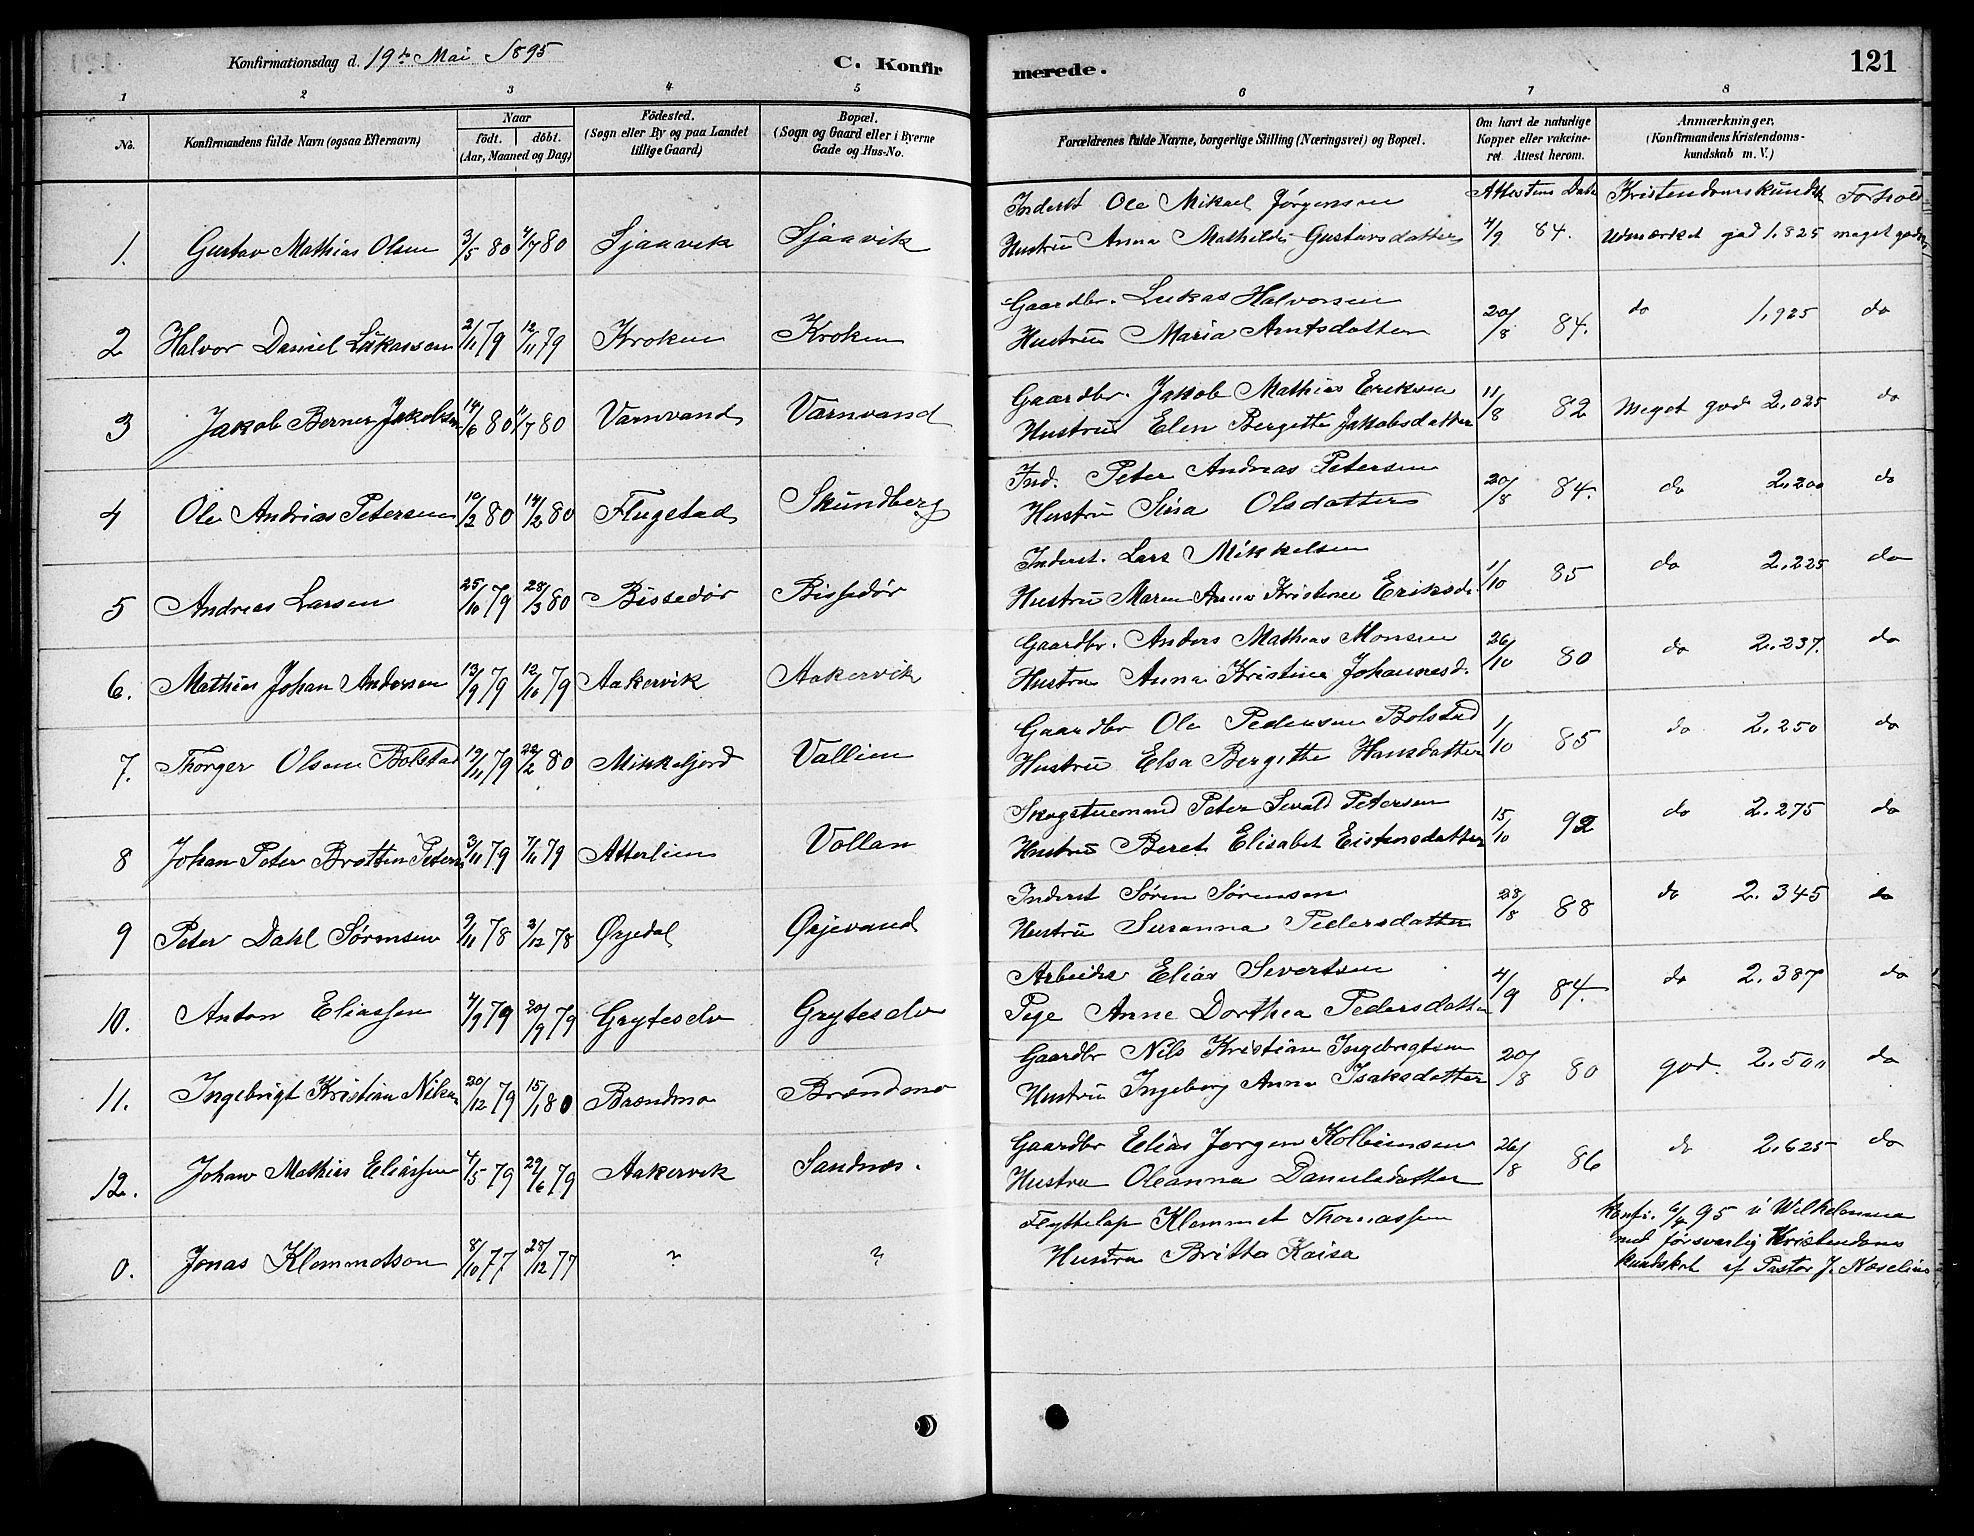 Konfirmationsdag d. 19de Mai 1895 C. Konfirmerede. 121
1 2 3 4 5 6 7 8
No. Konfirmandens fulde Navn (ogsaa Efternavn) Naar födt. döbt. (Aar, Maaned og Dag) Födested. (Sogn eller By og paa Landet tillige Gaard) Bopæl. (Sogn og Gaard eller i Byerne Gade og Hus-No. Forældrenes fulde Navne, borgerlige Stilling (Næringsvei) og Bopæl. Om havt de naturlige Kopper eller vakcineret. Attest herom. Anmærkninger, (Konfirmandens Kristendomskundskab m. V.)
Inderst Ole Mikael Jörgensen Attestens Dato Kristendomskundsk Forhold
1. Gustav Mathias Olsen 3/5 80 4/7 80 Sjaavik Sjaavik Hustru Anna Mathilde Gustavsdatter 4/9 84. Udmærket god 1.825 meget godt
Gaardbr. Lukas Halvorsen
2 Halvor Daniel Lukassen 2/11 79 12/11 79 Kroken Kroken Hustru Maria Arntsdatter 20/8 84. do 1,925 do
Gaardbr. Jakob Mathias Eriksen
3 Jakob Berner Jakobsen 14/6 80 11/7 80 Varnvand Varnvand Hustru Elen Bergitte Jakobsdatter 11/8 82 Meget god 2.025 do
Ind. Peter Andreas Petersen
4 Ole Andrias Petersen 10/2 80 14/2 80 Flugstad Skundberg Hustru Sina Olsdatter 20/8 84. do 2.200 do
Inderst. Lars Mikkelsen
5 Andreas Larsen 25/10 79 28/3 80 Bissedör Bissedör Hustru Maren Anna Kristine Eriksd. 1/10 85 do 2.225 do
Gaardbr. Anders Mathias Monsen
6. Mathias Johan Andersen 13/9 79 12/10 79 Aakervik Aakervik Hustru Anna Kristine Johannesd. 26/10 80 do 2.237. do
Gaardbr Ole Pedersen Bolstad
7. Thorger Olsen Bolstad 19/11 79 22/2 80 Mikkeljord Vallien Hustru Elsa Bergitte Hansdatter 1/10 85 do 2.250 do
Skogstuemand Peter Sevald Petersen
8 Johan Peter Bratten Peters 3/11 79 7/11 79 Atterlien Vollan Hustru Beret Elisabet Eistensdatter 15/10 92 do 2.275 do
Inderst Sören Sörensen
9 Peter Dahl Sörensen 9/11 78 2/12 78 Örjedal Örjevand Hustru Susanna Pedersdatter 28/8 88 do 2.345 do
Arbeider Elias Sivertsen
10. Anton Eliassen 4/9 79 20/9 79 Gryteselv Gryteselv Pige Anne Dorthea Pedersdatter 4/9 84. do 2.387 do
Gaardbr Nils Kristian Ingebrigtsen
11. Ingebrigt Kristian Nilsen 20/12 79 15/1 80 Brændmo Brændmo Hustru Ingeborg Anna Isaksdatter 20/8 80 god. 2.500 do
Gaardbr Elias Jörgen Kolbeinsen
12. Johan Mathias Eliassen 4/5 79 29/6 79 Aakervik Sandnæs. Hustru Oleanna Danielsdatter 26/8 86 do 2.625 do
Flyttelap Klemmet Thomassen Konfi. 6/4 95 i Wilhelmina
0. Jonas Klemmetson 8/10 77 28/12 77 ? ? Hustru Britta Kaisa med forsvarlig Kristendoms
kundskab af Pastor J. Næselius